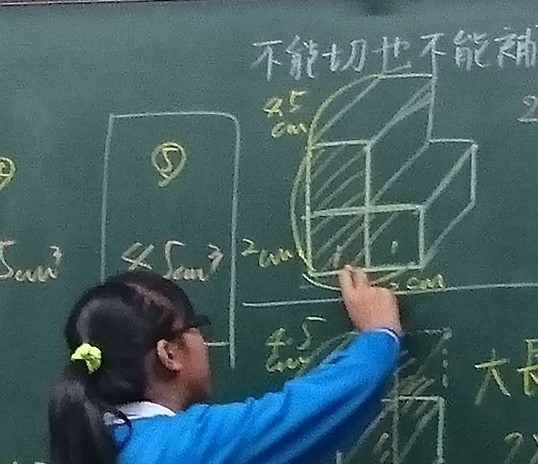 不能切也不能補
4.5
cm
⑤
45cm³
5cm³
2cm
1
2cm
4.5
cm
大長